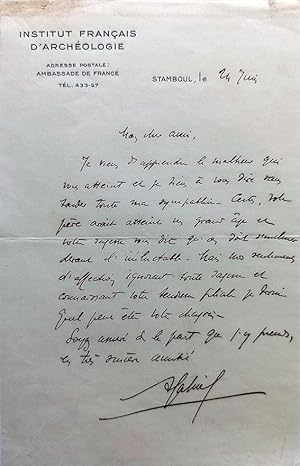 INSTITUT FRANÇAIS
D'ARCHÉOLOGIE
ADRESSE POSTALE:
AMBASSADE DE FRANCE
TÉL. 433-27
STAMBOUL, le 24 Juin
Mon cher ami,
Je viens d'apprendre le malheur qui
vous atteint et je tiens à vous dire sans
tarder toute ma sympathie. Certes, votre
père avait atteint un grand âge et
votre raison vous dit qu'on doit s'incliner
devant l'inéluctable. Mais nos sentiments
d'affection ignorent toute raison et
connaissant votre tendresse filiale je devine
quel peut être votre chagrin.
Soyez assuré de la part que j'y prends,
et très sincère amitié
AGabriel